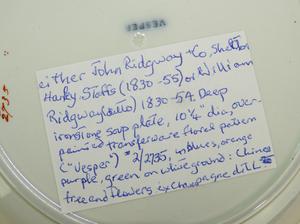 VESPER
either John Ridgway & Co, Shelton
Hanley Staffs (1830-55) or William
Ridgway (ditto) 1830-54. Deep
ironstone soup plate, 10¼" dia, over-
painted transferware floral pattern
("Vesper") 2/2735, in blues, orange
purple, green on white ground: Chinese
tree and flowers ex champagne
2735